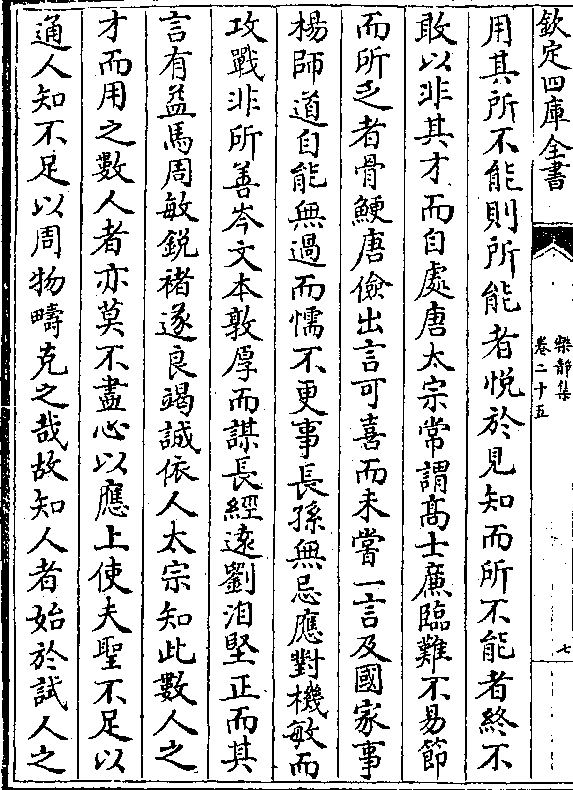 欽定四庫全書
樂静集
卷二十五
七
用其所不能則所能者悦於見知而所不能者終不
敢以非其才而自處唐太宗常謂髙士亷臨難不易節
而所乏者骨鯁唐儉出言可喜而未嘗一言及國家事
楊師道自能無過而懦不更事長孫無忌應對機敏而
攻戰非所善岑文本敦厚而謀長經逺劉洎堅正而其
言有益馬周敏鋭禇遂良竭誠依人太宗知此數人之
才而用之數人者亦莫不盡心以應上使夫聖不足以
通人知不足以周物疇克之哉故知人者始於試人之